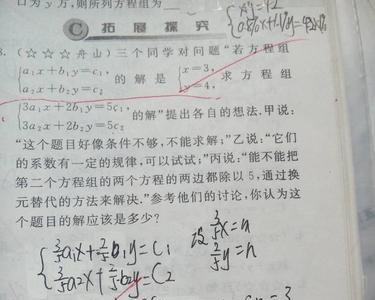 口为 y 方,则所列方程组为
C 拓展探究
(☆☆☆舟山)三个同学对问题“若方程组
a₁x+b₁y=c₁, 的解是 x=3, 求方程组
a₂x+b₂y=c₂ y=4,
3a₁x+2b₁y=5c₁, 的解”提出各自的想法.甲说:
3a₂x+2b₂y=5c₂
“这个题目好像条件不够,不能求解;”乙说:“它们
的系数有一定的规律,可以试试;”丙说:“能不能把
第二个方程组的两个方程的两边都除以5,通过换
元替代的方法来解决.”参考他们的讨论,你认为这
个题目的解应该是多少?
3/5a₁x+2/5b₁y=C₁ 设 3/5x=m
3/5a₂x+2/5b₂y=C₂ 2/5y=n